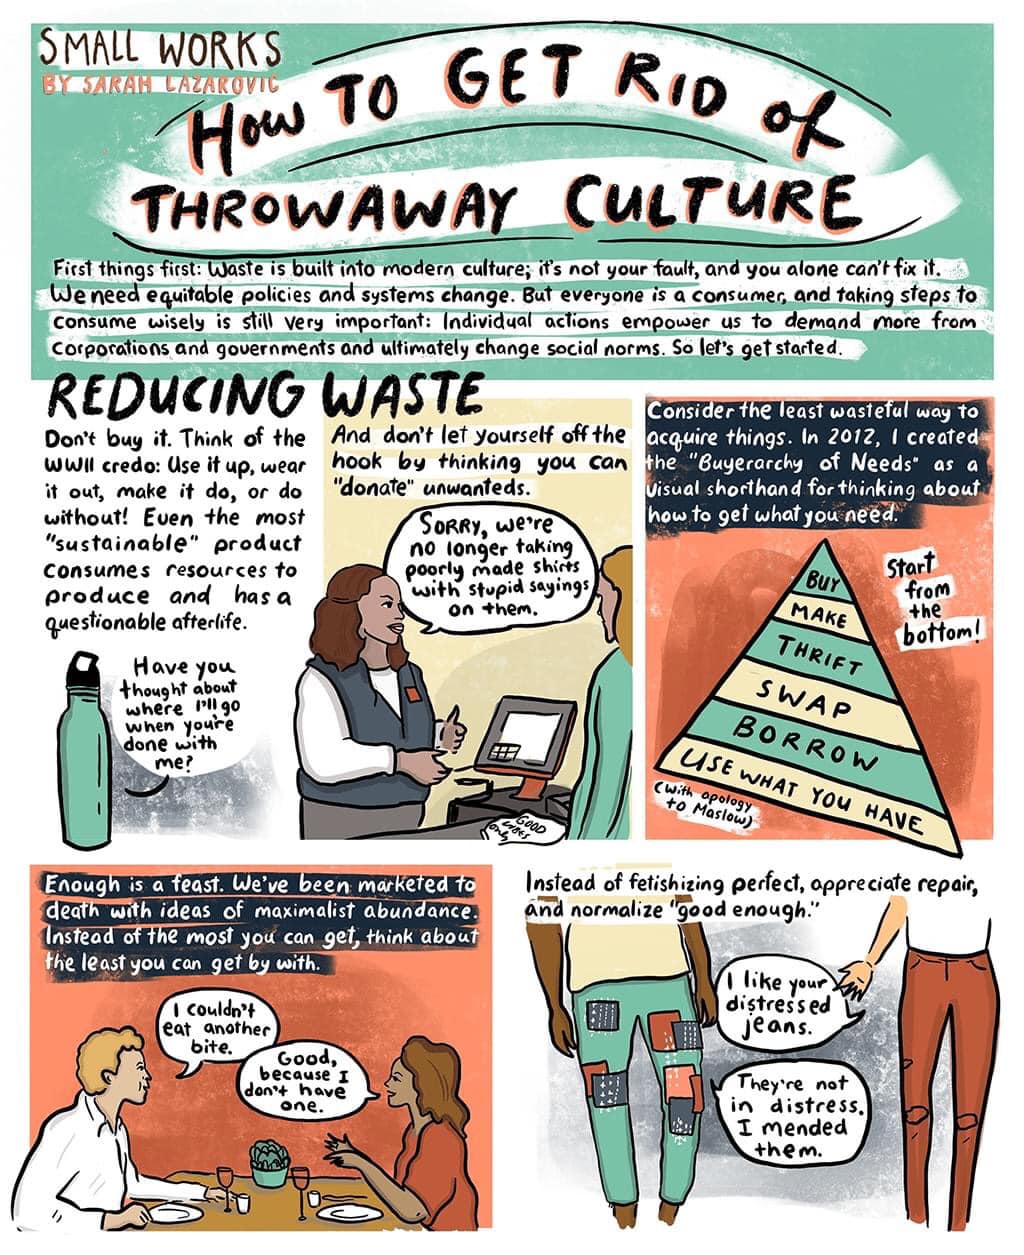 SMALL WORKS
BY SARAH LAZAROVIC
How TO GET RID of
THROWAWAY CULTURE
First things first: Waste is built into modern culture; it's not your fault, and you alone can't fix it.
We need equitable policies and systems change. But everyone is a consumer, and taking steps to
consume wisely is still very important: Individual actions empower us to demand more from
corporations and governments and ultimately change social norms. So let's get started.
REDUCING WASTE
Don't buy it. Think of the
WWII credo: Use it up, wear
it out, make it do, or do
without! Even the most
"sustainable" product
consumes resources to
produce and has a
questionable afterlife.
Have you
thought about
where I'll go
when you're
done with
me?
And don't let yourself off the
hook by thinking you can
"donate" unwanteds.
SORRY, we're
no longer taking
poorly made shirts
with stupid sayings
on them.
GOOD
VIBES
only
Consider the least wasteful way to
acquire things. In 2012, I created
the "Buyerarchy of Needs" as a
visual shorthand for thinking about
how to get what you need.
BUY
MAKE
THRIFT
SWAP
BORROW
USE WHAT YOU HAVE
Start
from
the
bottom!
(with apology
to Maslow)
Enough is a feast. We've been marketed to
death with ideas of maximalist abundance.
Instead of the most you can get, think about
the least you can get by with.
I couldn't
eat another
bite.
Good,
because I
don't have
one.
Instead of fetishizing perfect, appreciate repair,
and normalize "good enough."
I like your
distressed
jeans.
They're not
in distress.
I mended
them.